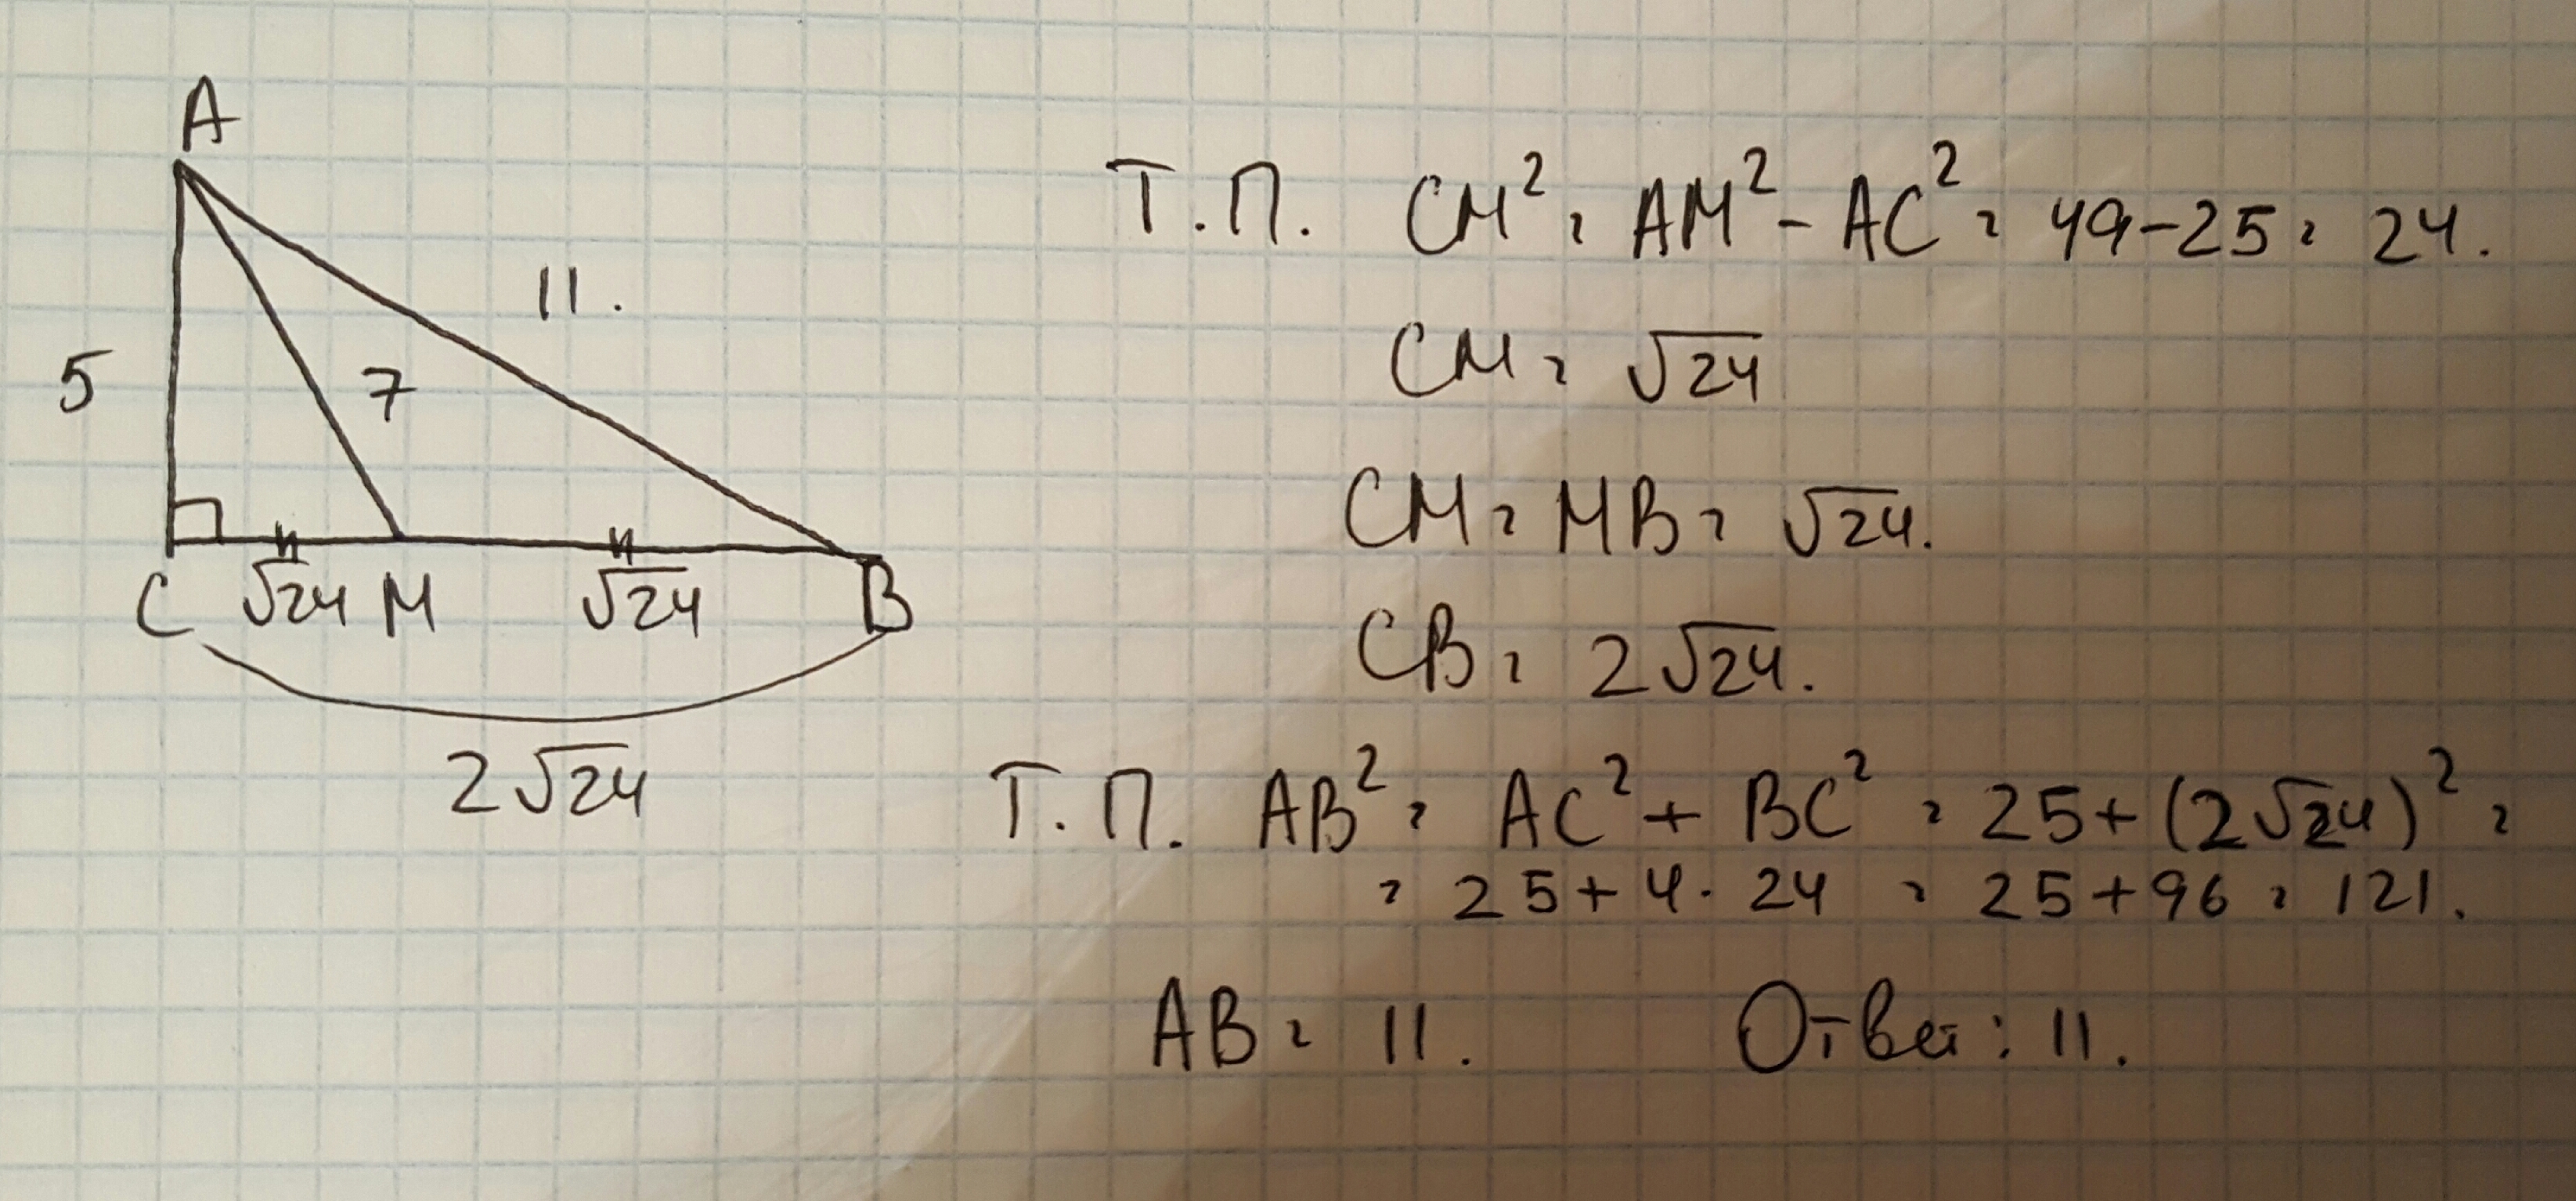 A
11.
5
7
C √24 M √24 B
2√24
Т.П. CM² = AM² - AC² = 49-25 = 24.
CM = √24
CM = MB = √24.
CB = 2√24.
Т.П. AB² = AC² + BC² = 25+(2√24)² =
= 25+4·24 = 25+96 = 121.
AB = 11. Ответ: 11.